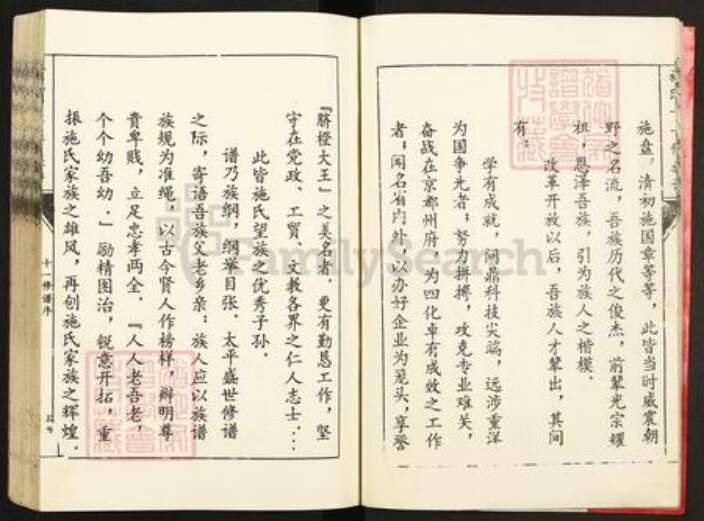 施盘，清初施国章等等，此皆当时威震朝
野之名流，吾族历代之俊杰，前辈光宗耀
祖，恩泽吾族，引为族人之楷模．
改革开放以后，吾族人才辈出，其间
有：
学有成就，问鼎科技尖端，远涉重洋
为国争光者；努力拼搏，攻克专业难关，
奋战在京都州府，为四化卓有成效之工作
者；闻名省内外，以办好企业为笼头，享誉
『脐橙大王』之美名者．更有勤恳工作，坚
守在党政、工贸、文教各界之仁人志士、…
此皆施氏望族之优秀子孙．
谱乃族纲，纲举目张．太平盛世修谱
之际，寄语吾族父老乡亲：族人应以族谱
族规为准绳，以古今贤人作榜样，辨明尊
贵卑贱，立足忠孝两全．『人人老吾老，
个个幼吾幼．」励精图治，锐意开拓，重
振施氏家族之雄风，再创施氏家族之辉煌．
十一修谱序
FamilySearch